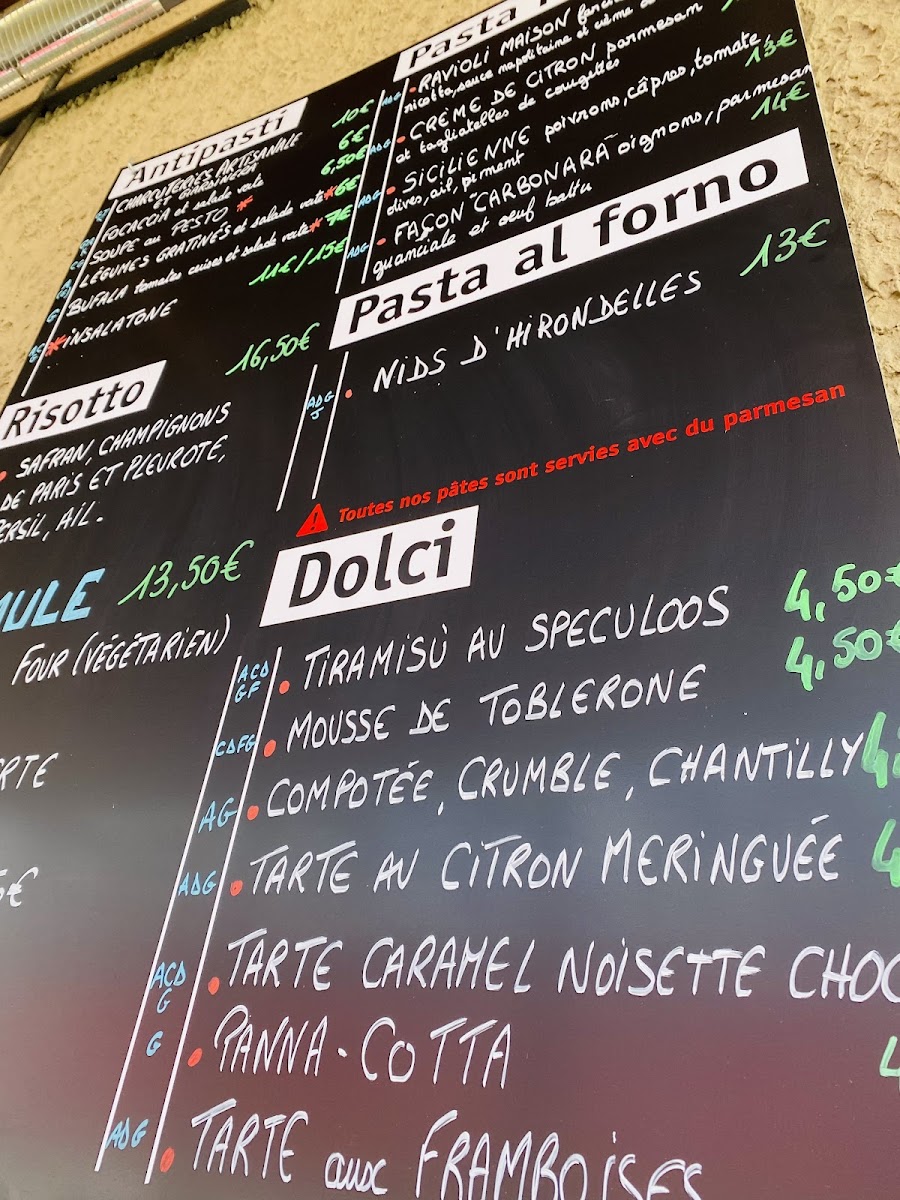 Antipasti
10€
CHARCUTERIES ARTISANALE
6€
FOCACCIA et salade verte
6,50€
SOUPE au PESTO *
LÉGUMES GRATINÉS et salade verte *6€
BUFALA tomates cuites et salade verte * 7€
*INSALATONE
11€/15€
Risotto
16,50€
• SAFRAN, CHAMPIGNONS
DE PARIS ET PLEUROTE,
PERSIL, AIL.
13,50€
FOUR (VÉGÉTARIEN)
Pasta
• RAVIOLI MAISON
ricotta, sauce napolitaine et crème de
• CRÈME DE CITRON parmesan
et tagliatelles de courgettes
13€
• SICILIENNE poivrons, câpres, tomate,
olives, ail, piment
14€
• FAÇON "CARBONARA" oignons, parmesan
guanciale et oeuf battu
Pasta al forno
13€
ADG
J
• NIDS D'HIRONDELLES
Toutes nos pâtes sont servies avec du parmesan
Dolci
ACD
GF
• TIRAMISÙ AU SPECULOOS 4,50€
CDFG • MOUSSE DE TOBLERONE 4,50€
AG • COMPOTÉE, CRUMBLE, CHANTILLY
ADG • TARTE AU CITRON MERINGUÉE
ACD
G
• TARTE CARAMEL NOISETTE CHOC
G • PANNA-COTTA
ADG • TARTE aux FRAMBOISES